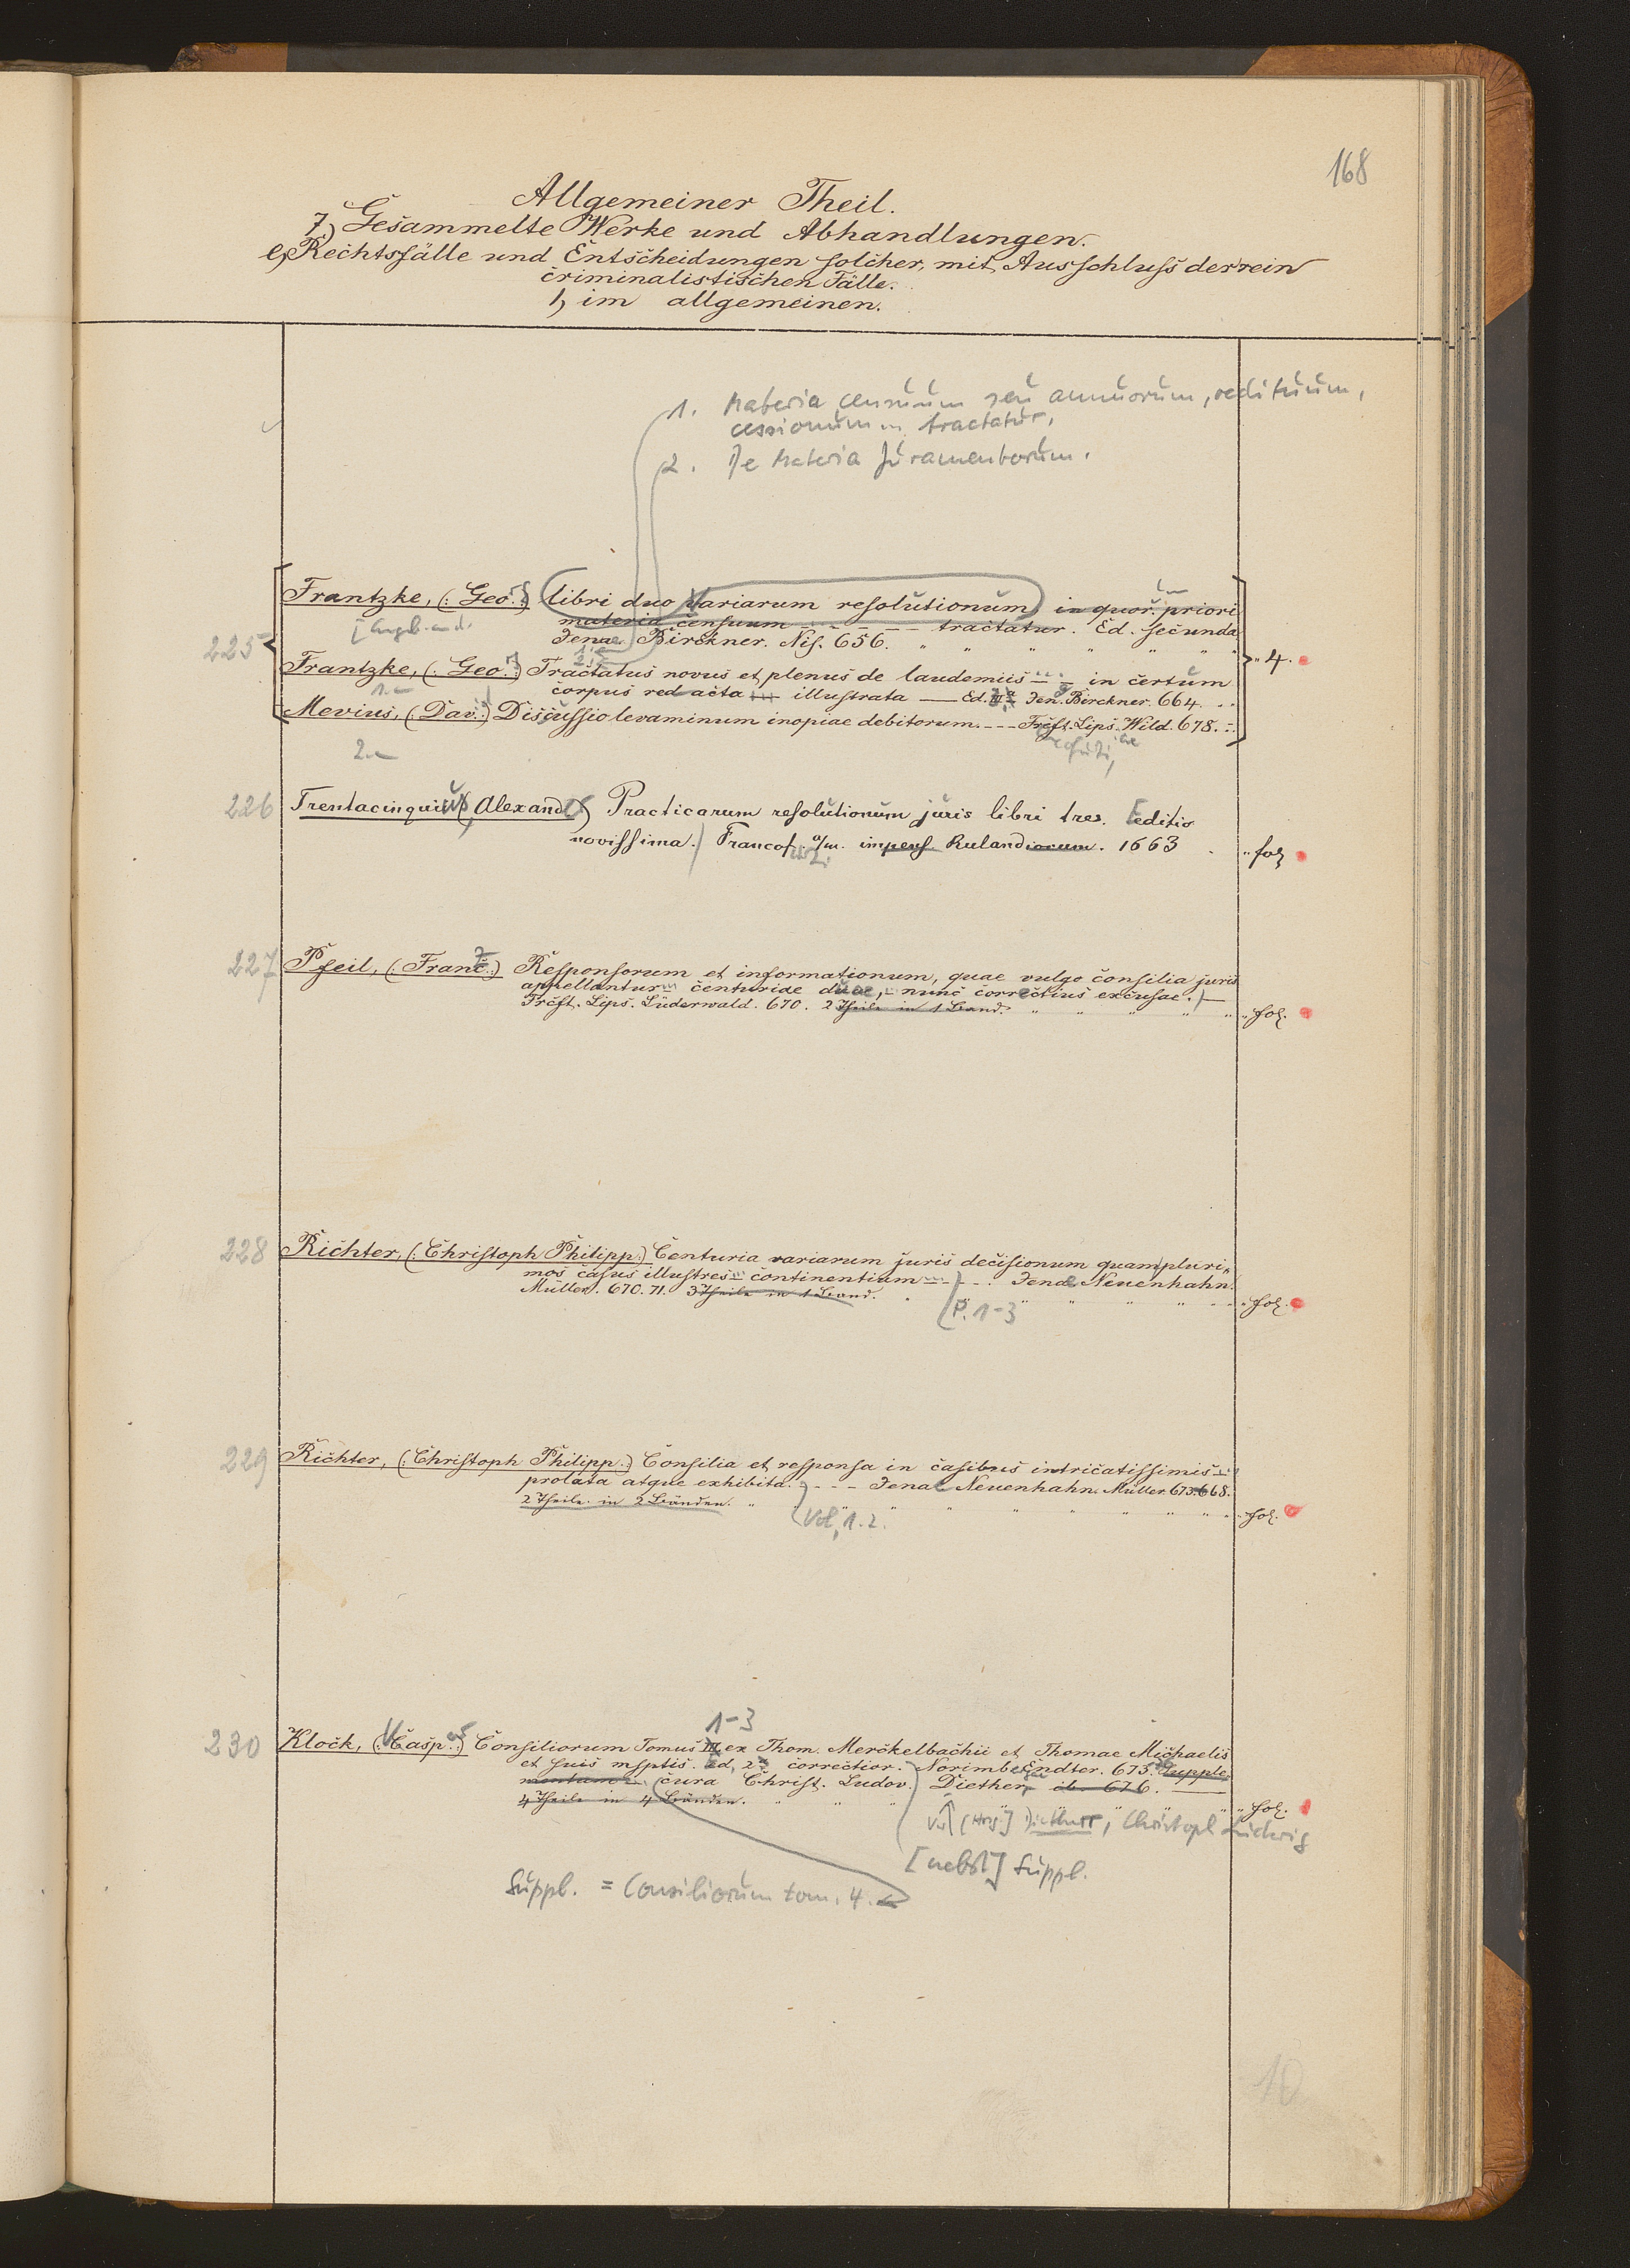 168
Allgemeiner Theil.
7, Gesammelte Werke und Abhandlungen.
e, Rechtsfälle und Entscheidungen solcher, mit Ausschluss der rein
criminalistischen Fälle.
1, im allgemeinen.
1. Materia censuum seu annuorum, redituum,
cessionum ... tractatur,
2. De Materia Juramentorum.
Frantzke, (: Geo.:) libri duo Variarum resolutionum in quor. priori
materia censuum - - - - - - tractatur. Ed. secunda
225 Jenae Birckner. Nis. 656. " " " " " "
Frantzke, (: Geo.:) Tractatus novus et plenus de laudemiis - - in certum " 4.
1.
corpus redacta ... illustrata — Ed. III Jen. Birckner. 664. . .
Mevius, (: Dav.:) Discussio levaminum inopiae debitorum. - - - Frcft. Lips. Wild. 678. -
2.
226 Trentacinquius (Alexand.) Practicarum resolutionum juris libri tres. [editio
novissima. Francof. a/m. impens. Rulandiorum. 1663 . " fol.
227 Pfeil, (: Franc.:) Responsorum et informationum, quae vulgo consilia juris
appellantur, centuriae duae, - nunc correctius excusae. —
Frcft. Lips. Lüderwald. 670. 2 Theile in 1 Band. " " " " " " fol.
228 Richter, (: Christoph Philipp.:) Centuria variarum juris decisionum quamplurin
mos casus illustres - continentium - - - . Jenae Neuenhahn.
Müller. 670. 71. 3 Theile in 1 Band. . " " " " " - - " fol.
P. 1-3
229 Richter, (: Christoph Philipp.:) Consilia et responsa in casibus intricatissimis -
prolata atque exhibita. - - - Jenae Neuenhahn. Müller. 673. 668.
2 Theile in 2 Bänden. " " " " " " " " " " fol.
Vol. 1. 2.
1-3
230 Klock, (: Casp.:) Consiliorum Tomus III ex Thom. Merckelbachii et Thomae Michaelis
et suis msptis. Ed. 2 a correctior. Norimb. Endter. 673. Supple-
mentum cura Christ. Ludov. Diether, ib. 676. —
4 Theile in 4 Bänden. " " " " " " fol.
[Hrsg.] Dietherr, Christoph Ludwig
[nebst] Suppl.
Suppl. = Consiliorum tom. 4.
10